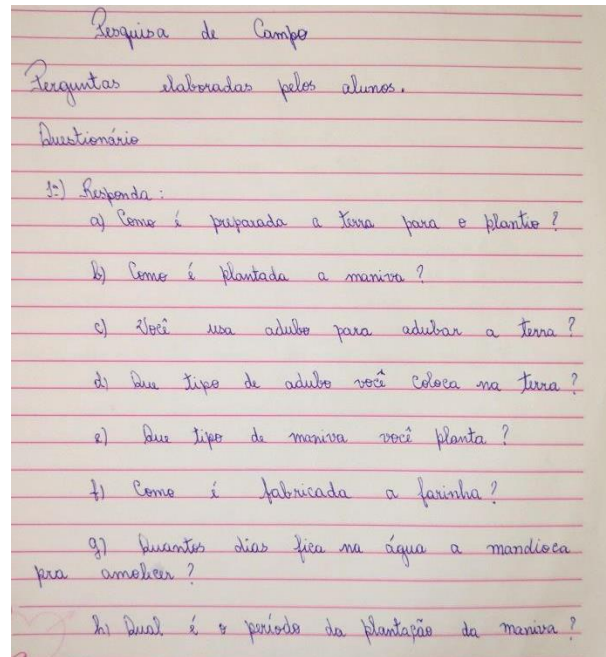 Pesquisa de Campo
Perguntas elaboradas pelos alunos.
Questionário
1º) Responda:
a) Como é preparada a terra para o plantio?
b) Como é plantada a maniva?
c) Você usa adubo para adubar a terra?
d) Que tipo de adubo você coloca na terra?
e) Que tipo de maniva você planta?
f) Como é fabricada a farinha?
g) Quantos dias fica na água a mandioca
pra amolecer?
h) Qual é o período da plantação da maniva?